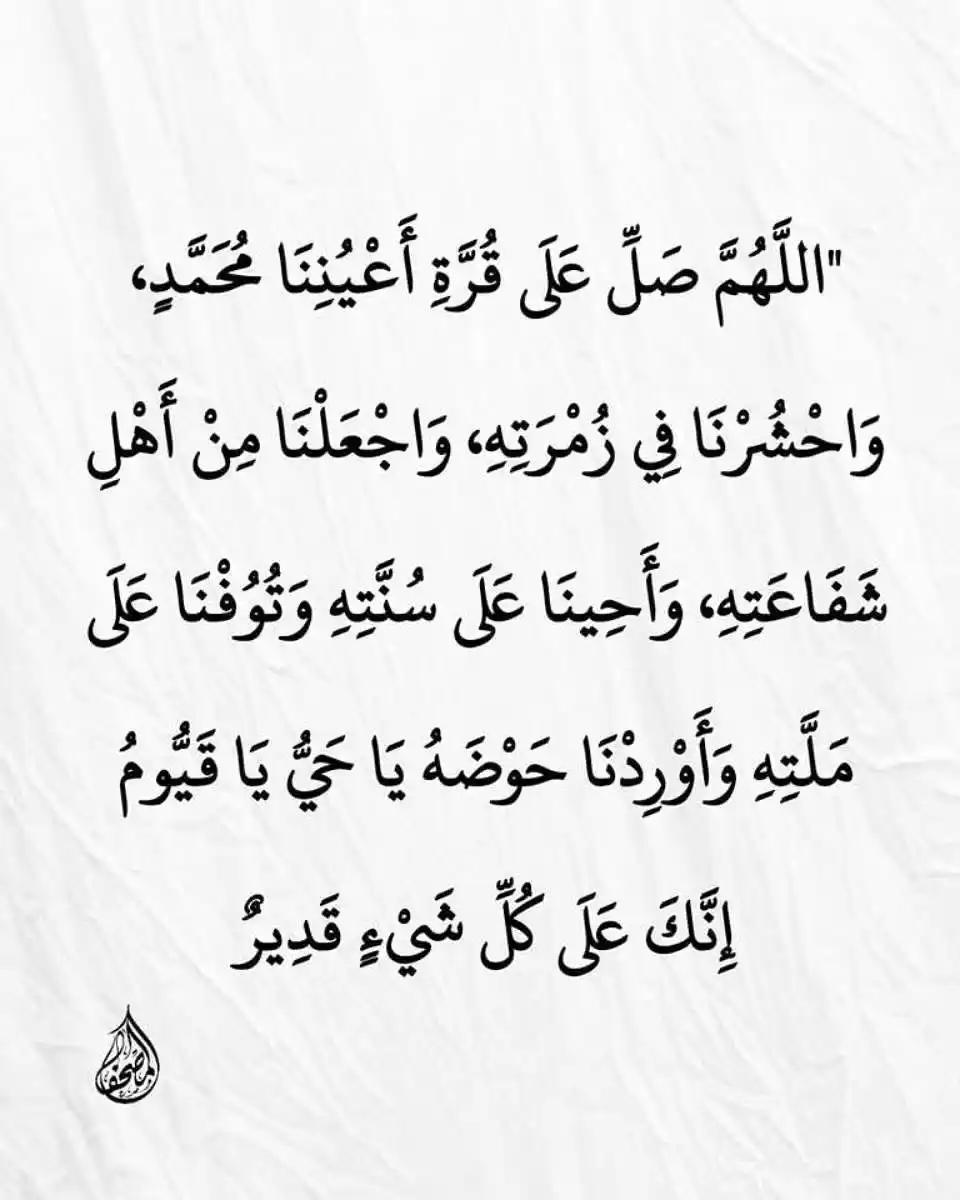 "اللَّهُمَّ صَلِّ عَلَى قُرَّةِ أَعْيُنِنَا مُحَمَّدٍ،
وَاحْشُرْنَا فِي زُمْرَتِهِ، وَاجْعَلْنَا مِنْ أَهْلِ
شَفَاعَتِهِ، وَأَحِينَا عَلَى سُنَّتِهِ وَتُوُفْنَا عَلَى
مَلَّتِهِ وَأَوْرِدْنَا حَوْضَهُ يَا حَيُّ يَا قَيُّومُ
إِنَّكَ عَلَى كُلِّ شَيْءٍ قَدِيرٌ